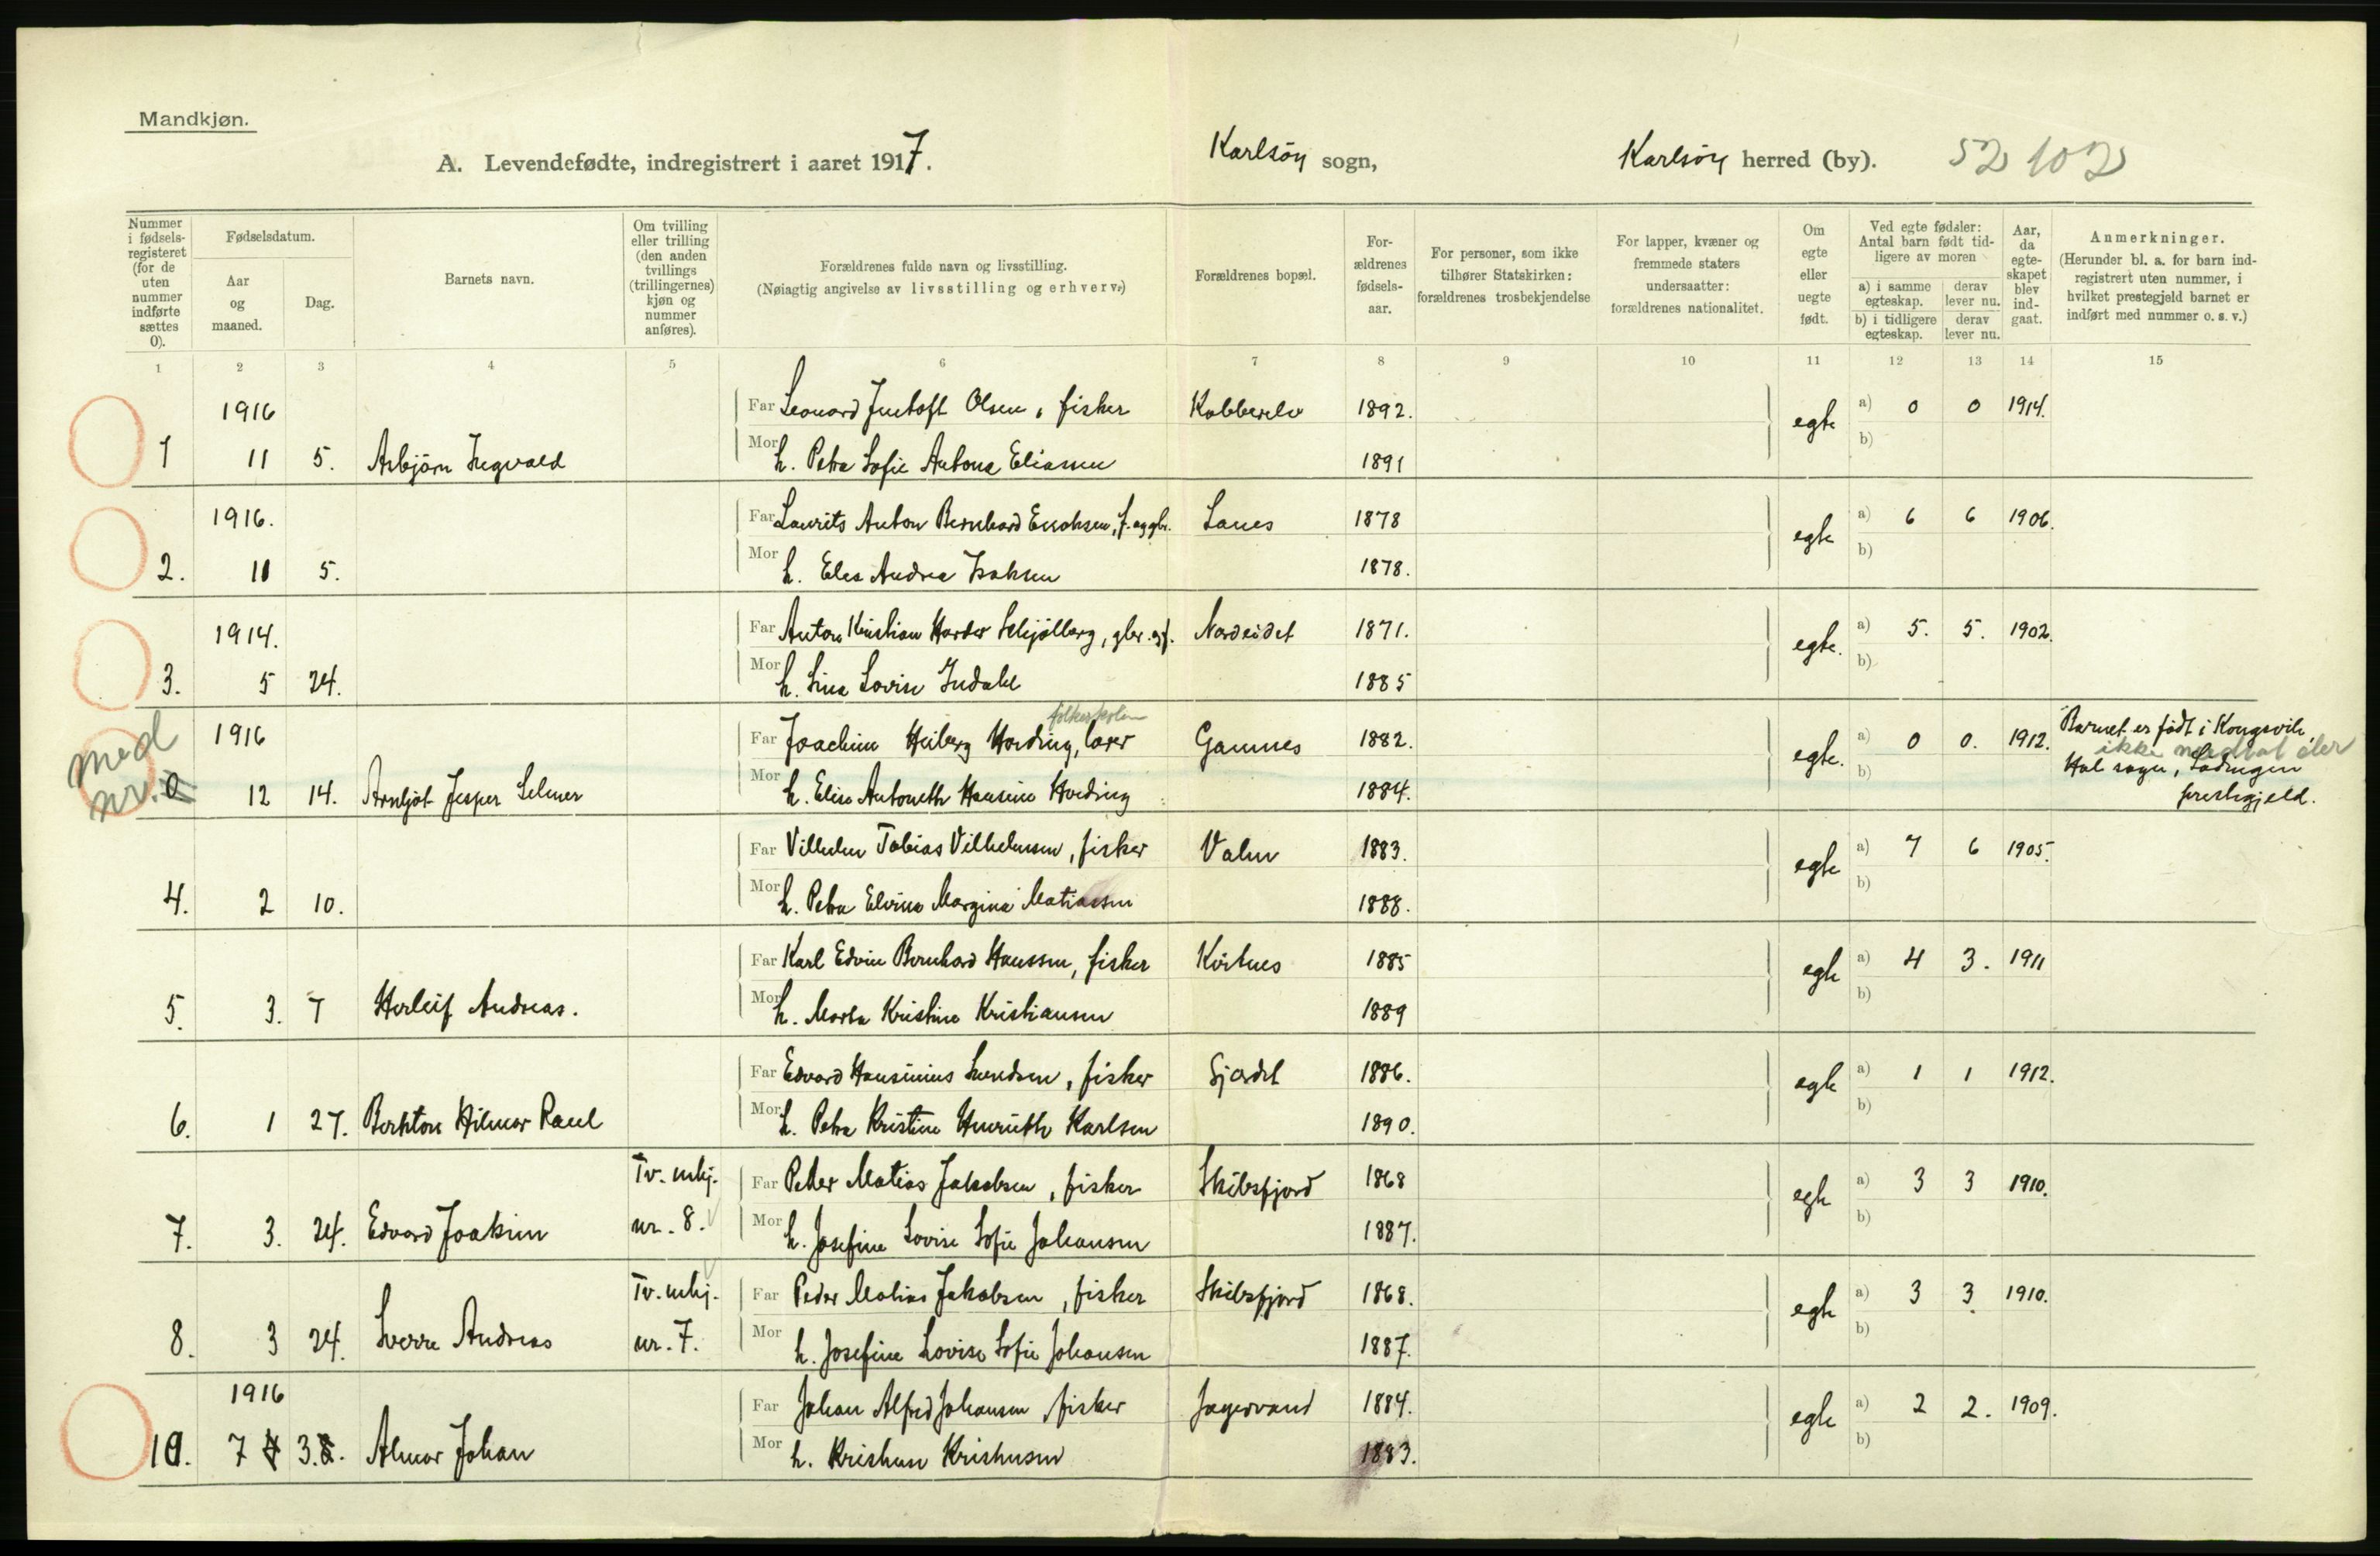 Mandkjøn.
A. Levendefødte, indregistrert i aaret 1917. Karlsöy sogn, Karlsöy herred (by). 52 102
Nummer i fødsels-registeret (for de uten nummer indførte sættes 0).
Fødselsdatum.
Aar og maaned.
Dag.
Barnets navn.
Om tvilling eller trilling (den anden tvillings (trillingernes) kjøn og nummer anføres).
Forældrenes fulde navn og livsstilling.
(Nøiagtig angivelse av livsstilling og erhverv.)
Forældrenes bopæl.
For-ældrenes fødsels-aar.
For personer, som ikke tilhører Statskirken: forældrenes trosbekjendelse
For lapper, kvæner og fremmede staters undersaatter: forældrenes nationalitet.
Om egte eller uegte født.
Ved egte fødsler: Antal barn født tid-ligere av moren
a) i samme egteskap.
derav lever nu.
b) i tidligere egteskap.
derav lever nu.
Aar, da egte-skapet blev ind-gaat.
Anmerkninger.
(Herunder bl. a. for barn ind-registrert uten nummer, i hvilket prestegjeld barnet er indført med nummer o. s. v.)
1 2 3 4 5 6 7 8 9 10 11 12 13 14 15
1916 Far Leonard Olsen, fisker Kobberelv 1892. egte a) 0 0 1914.
b)
1 11 5. Asbjörn Ingvald Mor h. Petra Sofie Antona Eliassen 1891
1916. Far Laurits Anton Bernhard Enoksen, f. og gbr. Lanes 1878 egte a) 6 6 1906.
b)
2. 11 5. Mor h. Elea Andrea Isaksen 1878.
1914. Far Anton Kristian Harder Schjölberg, gbr. og f. Nordeidet 1871. egte. a) 5. 5. 1902.
b)
3. 5 24. Mor h. Lina Lovise Indahl 1885
folkeskolen
1916 Far Joachim Heiberg Hveding, lærer Gamnes 1882. egte. a) 0 0. 1912. Barnet er födt i Kongsvik,
med ikke medtat der
b) Hol sogn, Lödingen
nr. 0 12 14. Arnljot Jesper Selmer Mor h. Elise Antonette Hansine Hveding 1884. prestegjeld.
Far Vilhelm Tobias Vilhelmsen, fisker Valen 1883. egte a) 7 6 1905.
b)
4. 2 10. Mor h. Petra Elvina Margina Matiassen 1888.
Far Karl Edvin Bernhard Hanssen, fisker Kvitnes 1885 egte a) 4 3. 1911
b)
5. 3. 7 Herleif Andreas. Mor h. Marta Kristine Kristiansen 1889
Far Edvard Hansinius Svendsen, fisker Gjærdet 1886. egte a) 1 1 1912.
b)
6. 1 27. Berhton Hilmar Paul Mor h. Petra Kristine Henrikke Karlsen 1890.
Tv. mkj. Far Peder Matias Jakobsen, fisker Skibsfjord 1868 egte a) 3 3 1910.
b)
7. 3. 24. Edvard Joakim nr. 8. Mor h. Josefine Lovise Sofie Johansen 1887.
Tv. mkj. Far Peder Matias Jakobsen, fisker Skibsfjord 1868. egte a) 3 3. 1910.
b)
8. 3 24. Sverre Andreas nr. 7. Mor h. Josefine Lovise Sofie Johansen 1887.
1916 Far Johan Alfred Johansen, fisker Jægervand 1884. egte a) 2 2. 1909.
b)
10. 7 3. Almar Johan Mor h. Kristine Kristensen 1883.